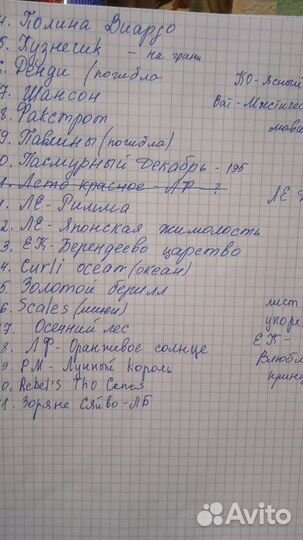 4. Полина Виардо
5. Кузнечик - на грани
6. Денди (погибла
7. Шансон
8. Фокстрот
9. Павлины (погибла)
0. Пасмурный Декабрь - 195
1. Лето красное - ЛФ - ?
1. ЛЕ - Римма
2. ЛЕ - Японская жимолость
3. ЕК - Берендеево царство
4. Curli oceat (океан)
5. Золотой берилл
6. Scales
7. Осенний лес
8. ЛФ - Оранжевое солнце
9. РМ - Лунный король
0. Rebel's Tho Cones
1. Зоряне Сяйво - ЛБ
КО - Ясный
Ват - Мистическ
мави
ЛЕ
лист
укоре
ЕК -
Влюбл
принц
Avito